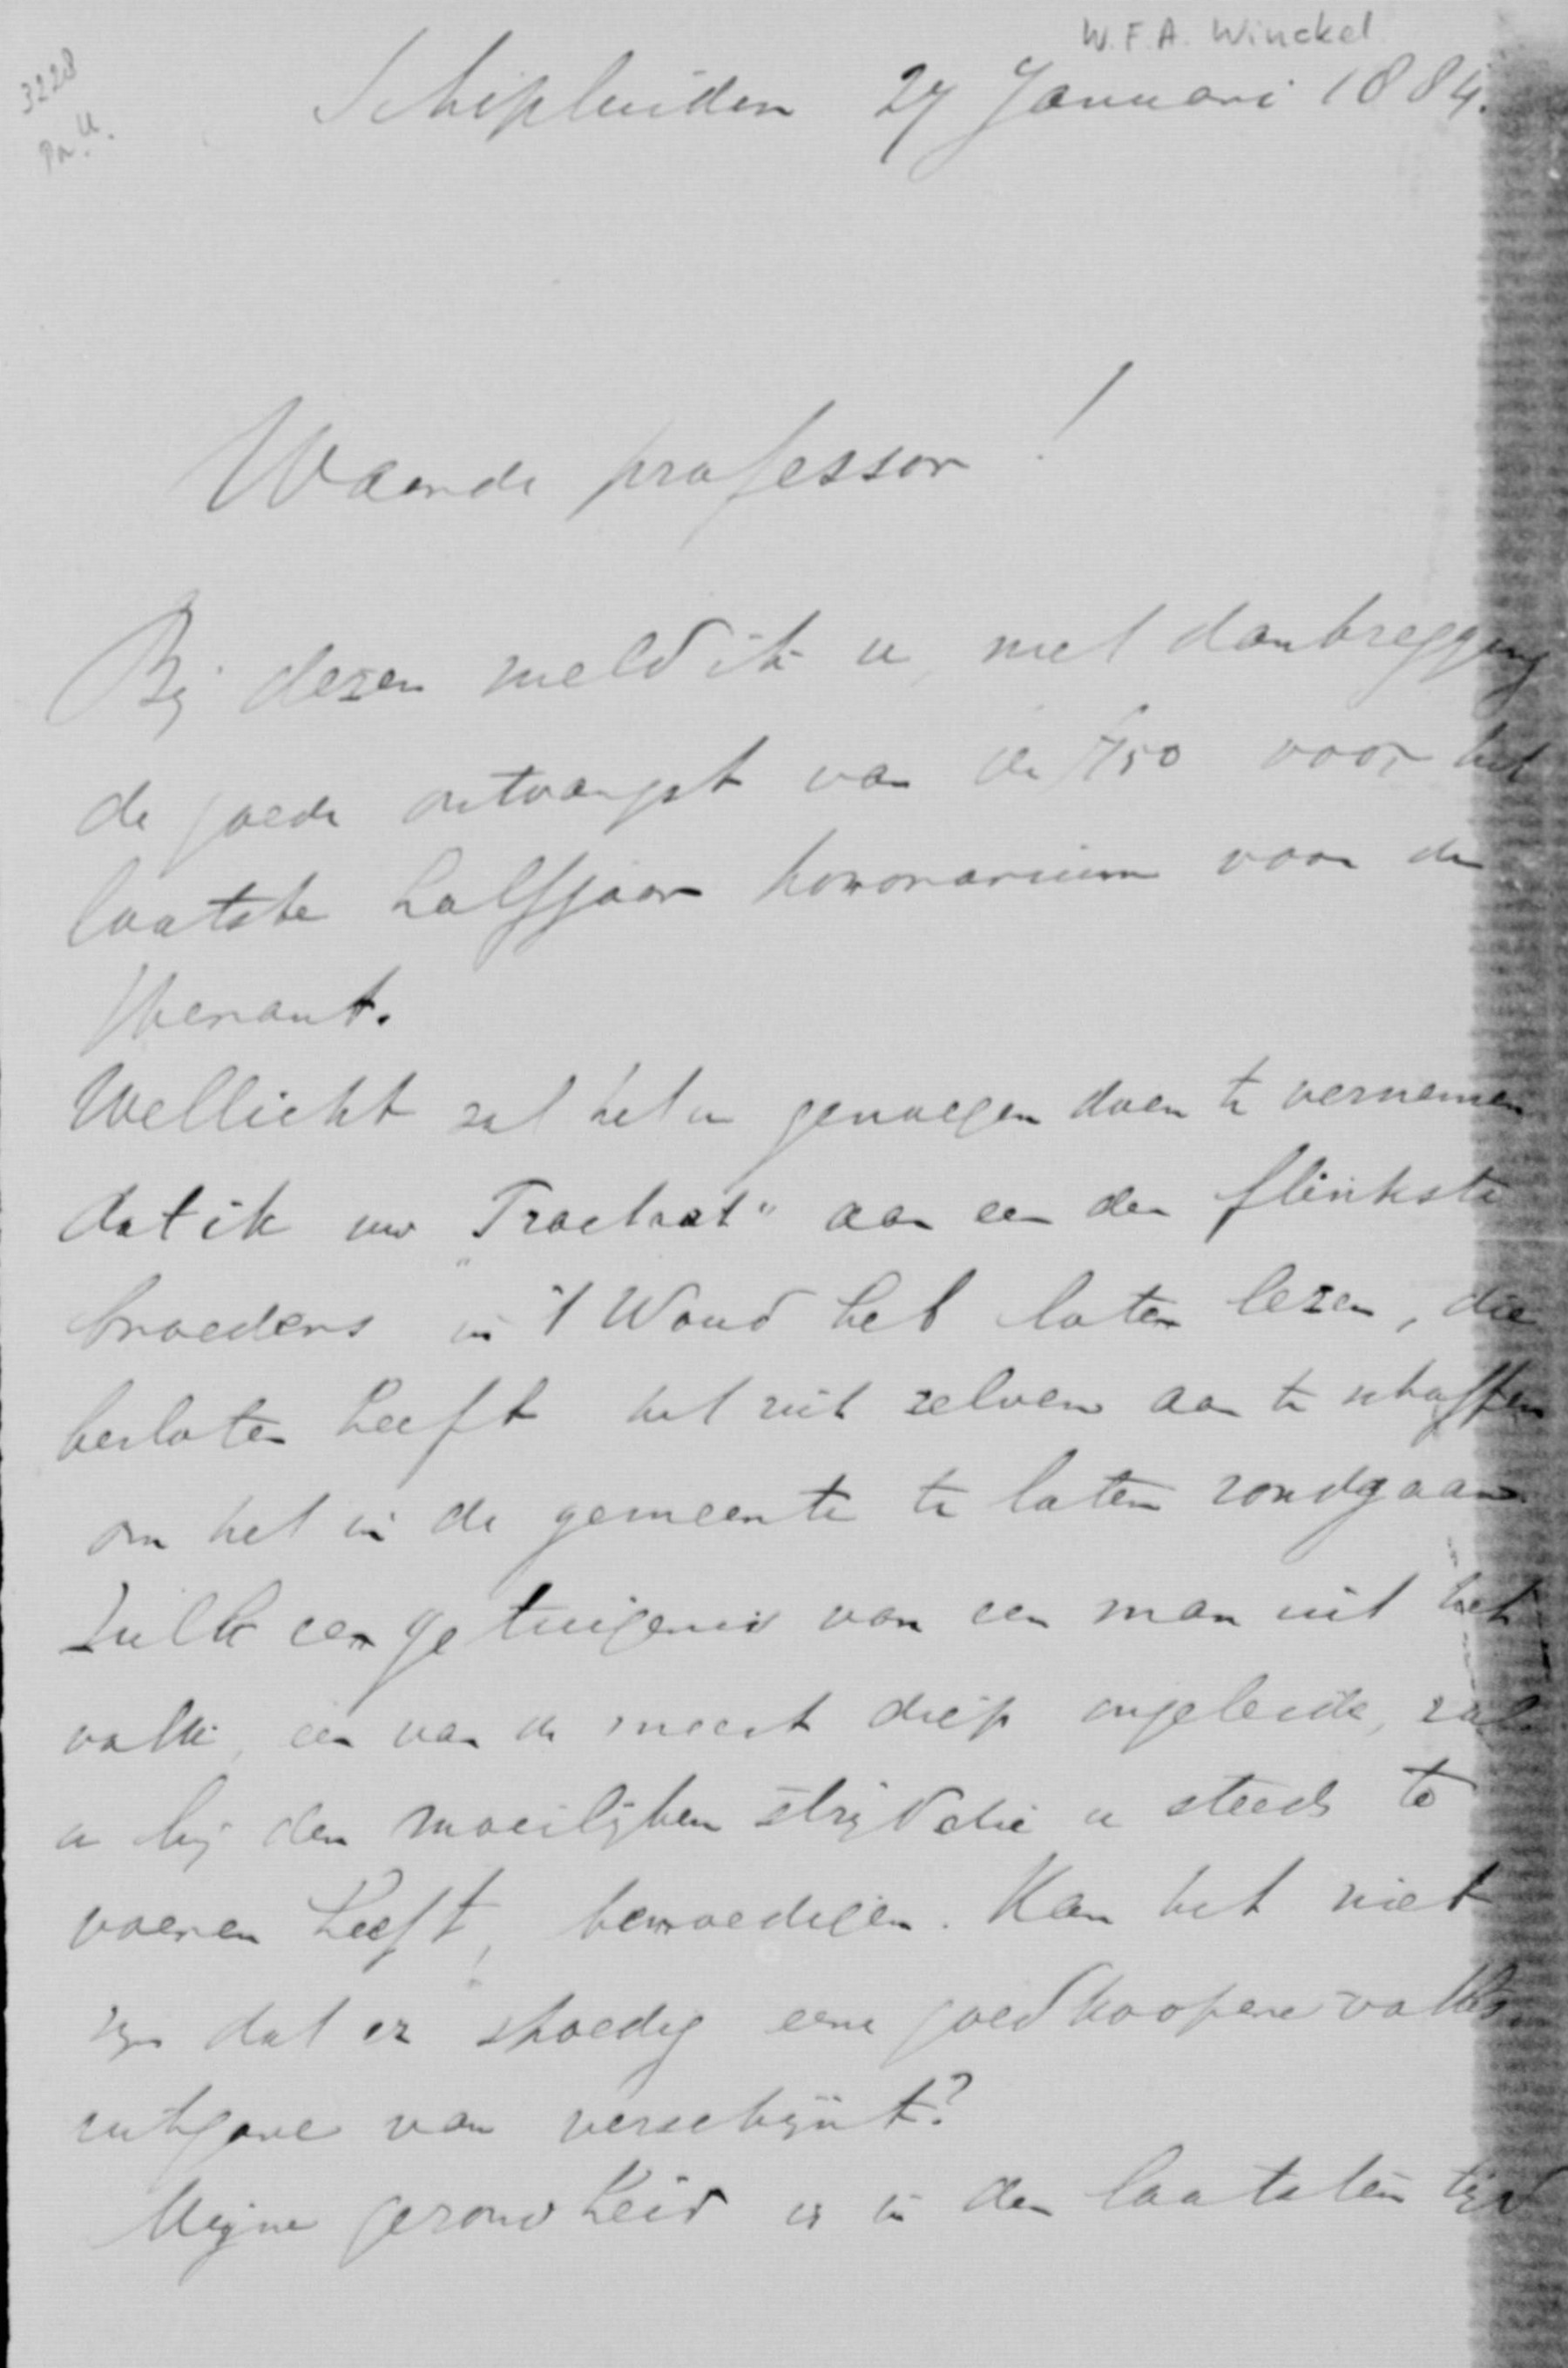 W.F.A. Winckel
3228
Schipluiden 27 Januari 1884.
Waarde professor!
Bij dezen meld ik u, met dankzegging
de goede ontvangst van de f 750 voor het
laatste halfjaar honorarium voor de
Heraut.
Wellicht zal het u genoegen doen te vernemen
dat ik uw „Tractaat" aan een der flinkste
broeders in 't Woud heb laten lezen, die
besloten heeft het zich zelven aan te schaffen
om het in de gemeente te laten rondgaan
Zulk een getuigenis van een man uit het
volk, een van de meest diep ingeleide, zal
u bij den moeilijken strijd die u steeds te
voeren heeft, bemoedigen. Kan het niet
zijn dat er spoedig eene goedkoopere volks
uitgave van verschijnt?
Mijne gezondheid is in den laatsten tijd